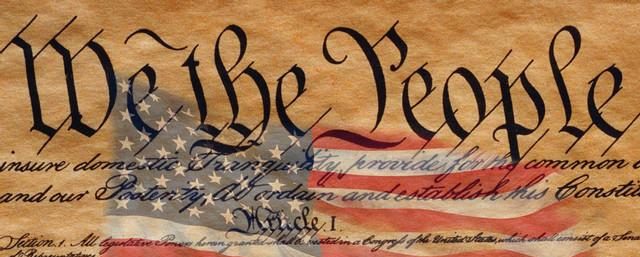 We the People
insure domestic Tranquility, provide for the common
and our Posterity, do ordain and establish this Consti
Article. I.
Section. 1. All legislative Powers herein granted shall be vested in a Congress of the United States, which shall consist of a Sena
of Representatives.